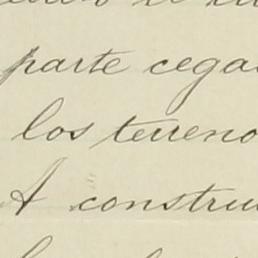 parte cega
los terreno
A constru